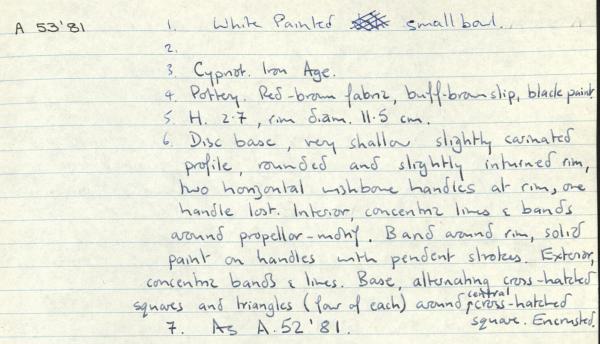 A 53'81
1. White Painted small bowl.
2.
3. Cypriot. Iron Age.
4. Pottery. Red-brown fabric, buff-brown slip, black paint
5. H. 2.7, rim diam. 11.5 cm.
6. Disc base, very shallow slightly carinated
profile, rounded and slightly inturned rim,
two horizontal wishbone handles at rim, one
handle lost. Interior, concentric lines & bands
around propellor-motif. Band around rim, solid
paint on handles with pendent strokes. Exterior,
concentric bands & lines. Base, alternating cross-hatched
squares and triangles (four of each) around central cross-hatched
square. Encrusted.
7. As A.52'81.